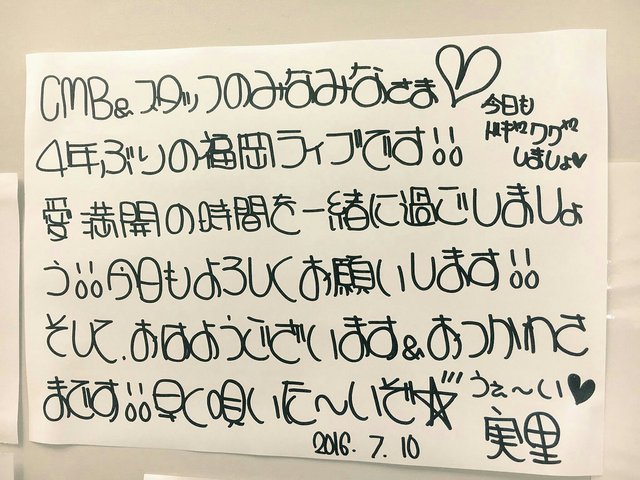 CMB&スタッフのみなみなさま♡
今日も
ドキ²ワク²
しましょ♥
4年ぶりの福岡ライブです!!
愛満開の時間を一緒に過ごしましょ
う!!今日もよろしくお願いします!!
そして、おはようございます&おつかれさ
まです!!早く唄いた〜いぞ☆
うぇ〜い♥
2016. 7. 10
実里